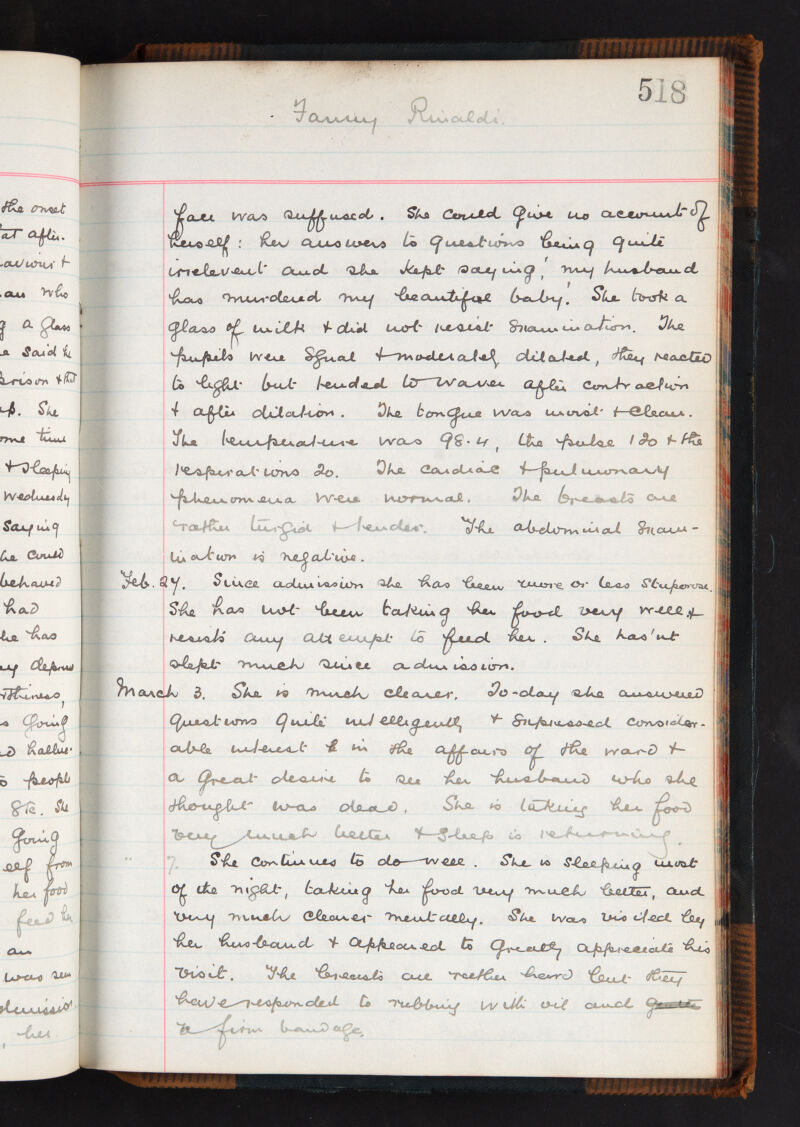 518
Fanny Rinaldi.
the onset
at after-
aviour &
an who
g a glass
e said he
prison & that
up. She
ome time
& sleeping
Wednesday
saying
he could
behaved
had
he has
ey depress
rthiness,
s going
nd halluc-
o people
&tc. She
going
elf from
her food
feed her
an
was seen
admission.
, her
face was suffused. She could give no account of
herself: her answers to questions being quite
irrelevent and she kept saying, 'my husband
has murdered my beautiful baby'. She took a
glass of milk & did not resist examination. The
pupils were equal & moderately dilated, they reacted
to light but tended to waver after contraction
& after dilation. The tongue was moist & clean.
The temperature was 98.4, the pulse 120 & the
respirations 20. The cardiac & pulmonary
phenomena were normal. The breasts are
rather turgid & tender. The abdominal exam-
ination is negative.
Feb. 27. Since admission she has been more or less stuporose.
She has not been taking her food very well &
resists any attempt to feed her. She has'nt
slept much since admission.
March 3. She is much clearer. To-day she answered
questions quite intelligently & expressed consider-
able interest in the affairs of the ward &
a great desire to see her husband who she
thought was dead. She is taking her food
very much better & sleep is returning.
" 7. She continues to do well. She is sleeping most
of the night, taking her food very much better, and
very much clearer mentally. She was visited by
her husband & appeared to greatly appreciate his
visit. The breasts are rather hard but they
have responded to rubbing with oil and
a firm bandage.